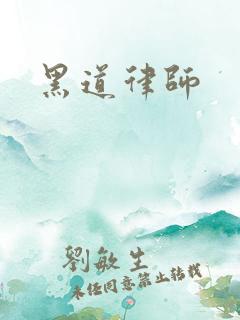 黑道律師
劉敏生
未經同意禁止轉載